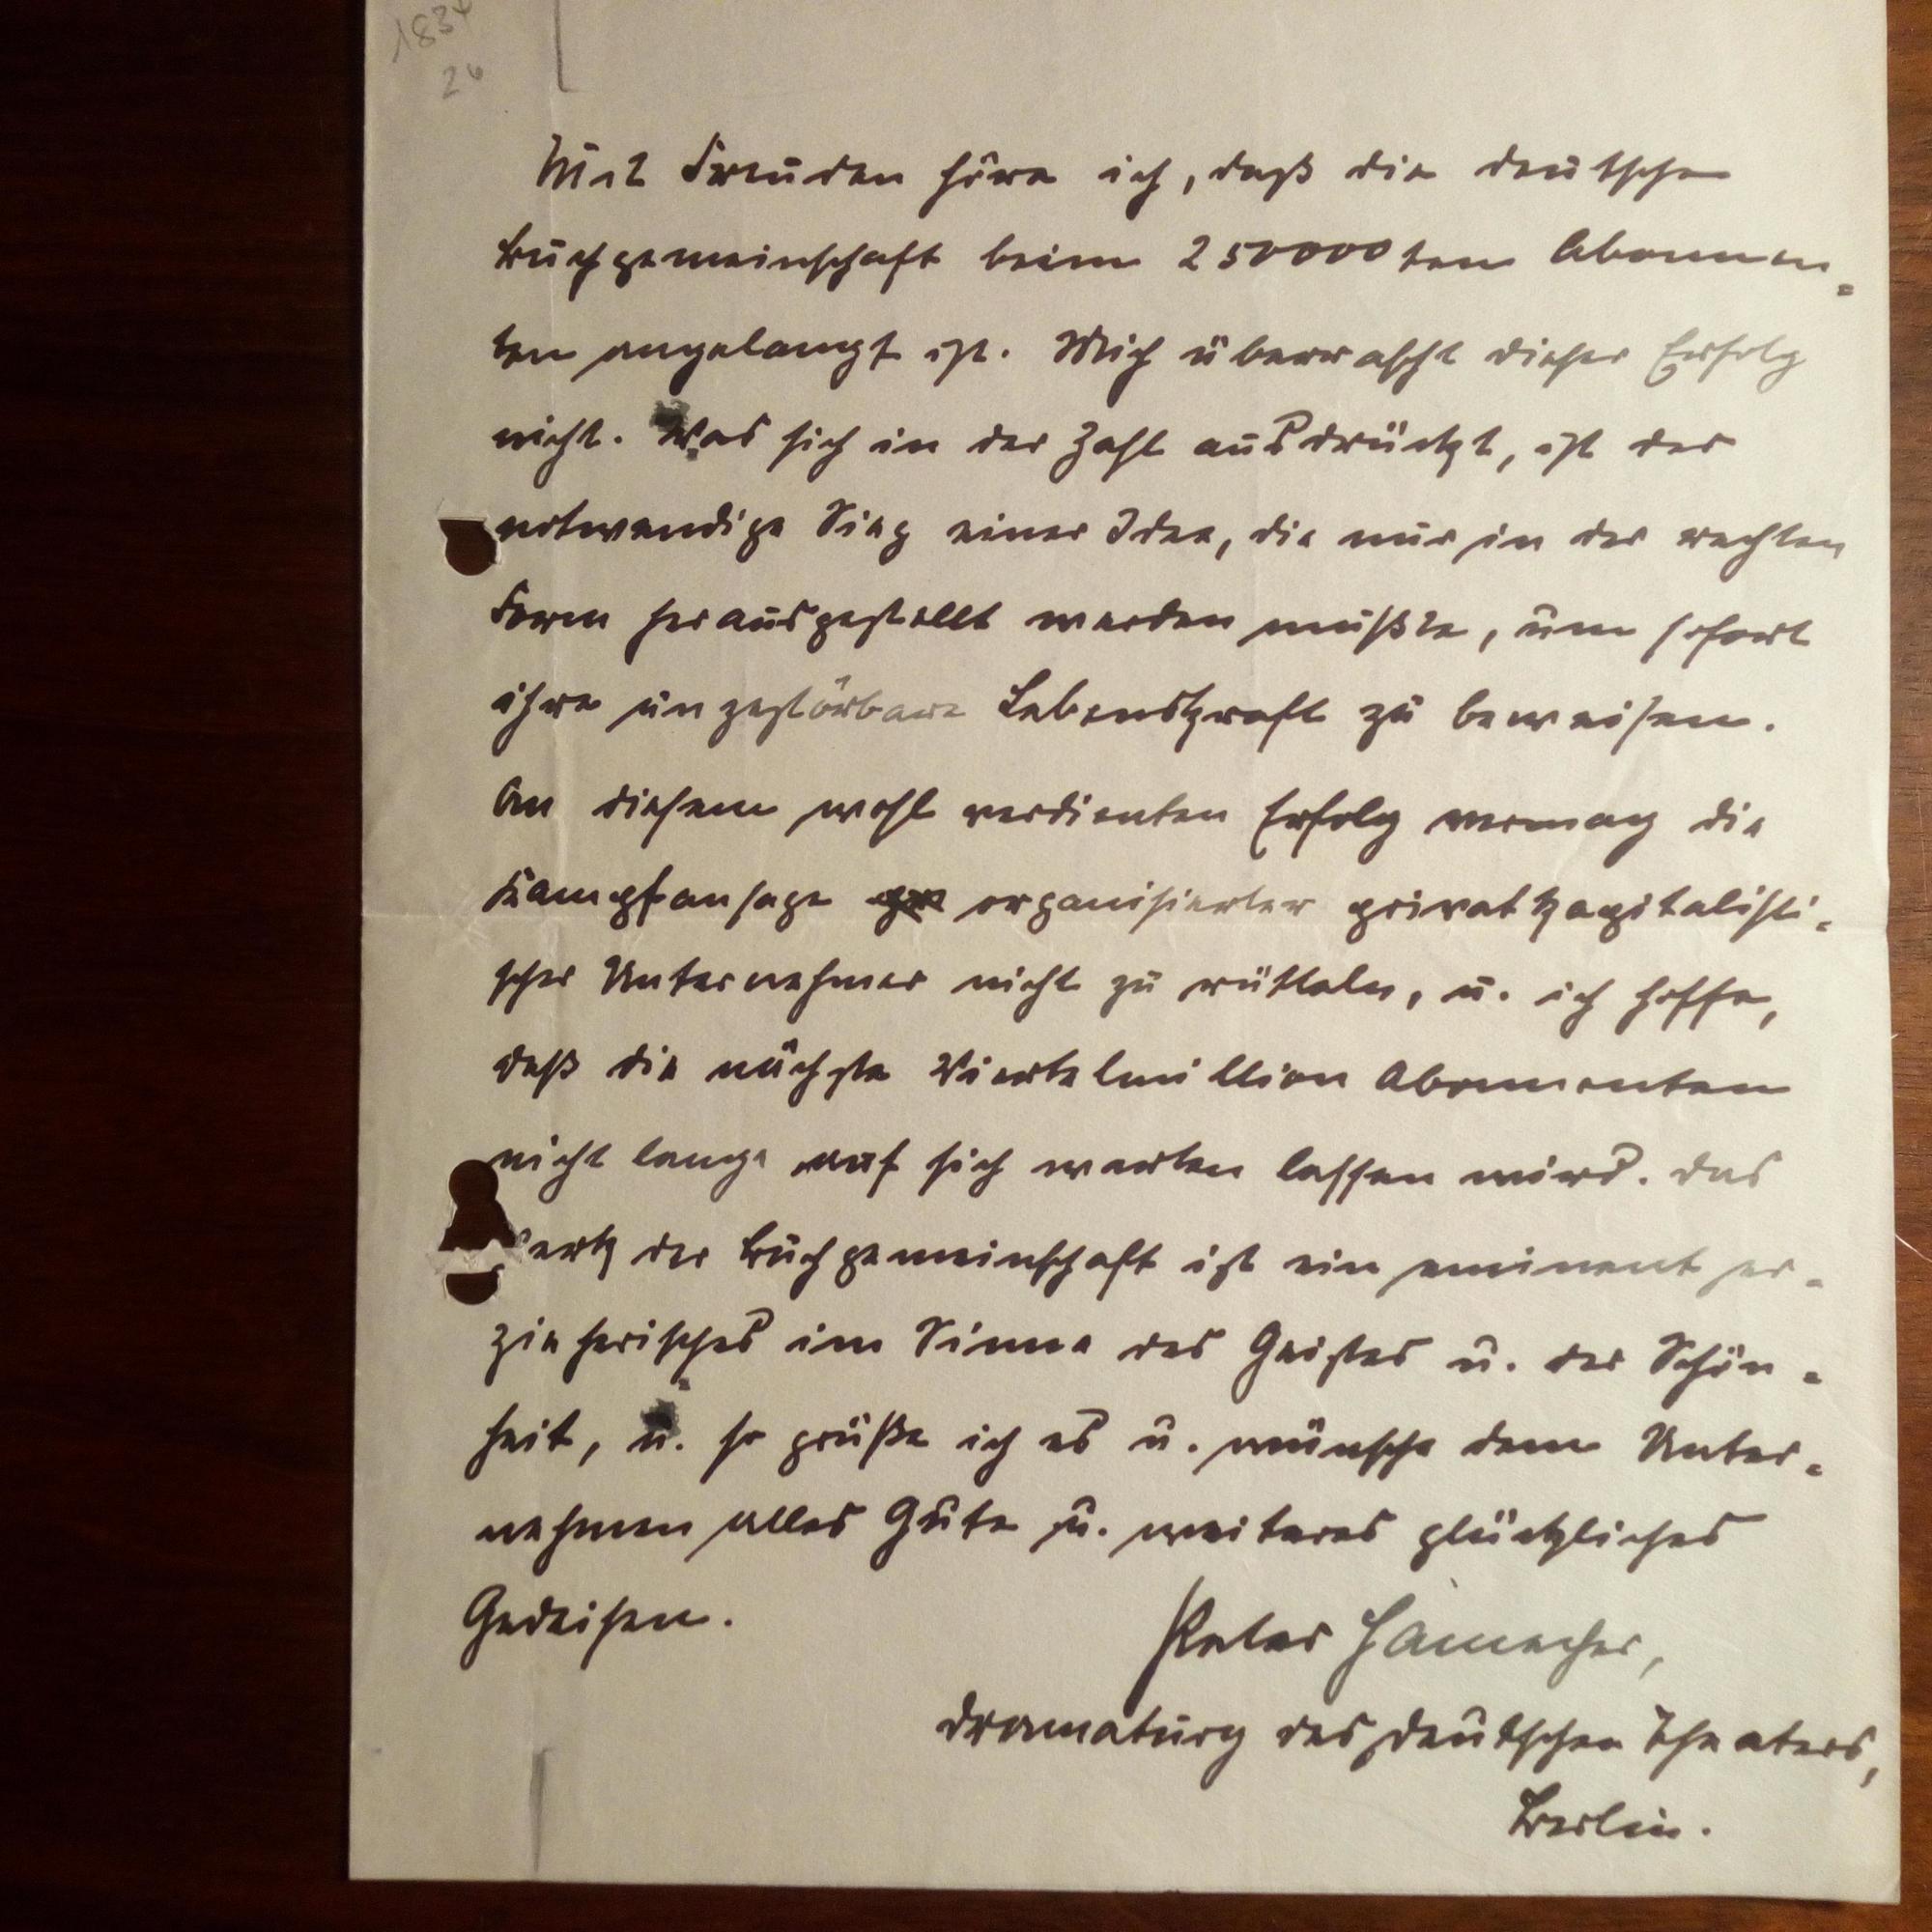 26
Mit Freuden höre ich, daß die deutsche
Buchgemeinschaft beim 250000ten Abonnen=
ten angelangt ist. Mich überrascht dieser Erfolg
nicht. Was sich in der Zahl ausdrückt, ist der
notwendige Sieg einer Idee, die nur in der rechten
Form herausgestellt werden mußte, um sofort
ihre unzerstörbare Lebenskraft zu beweisen.
An diesem wohl verdienten Erfolg vermag die
Kampfansage organisierter privatkapitalisti=
scher Unternehmer nicht zu rütteln, u. ich hoffe,
daß die nächste Viertelmillion Abonnenten
nicht lange auf sich warten lassen wird. Das
Werk der Buchgemeinschaft ist ein eminent er=
zieherisches im Sinne des Geistes u. der Schön=
heit, u. so grüße ich es u. wünsche dem Unter=
nehmen alles Gute u. weiteres glückliches
Gedeihen.
Peter Hamecher,
Dramaturg des Deutschen Theaters,
Berlin.